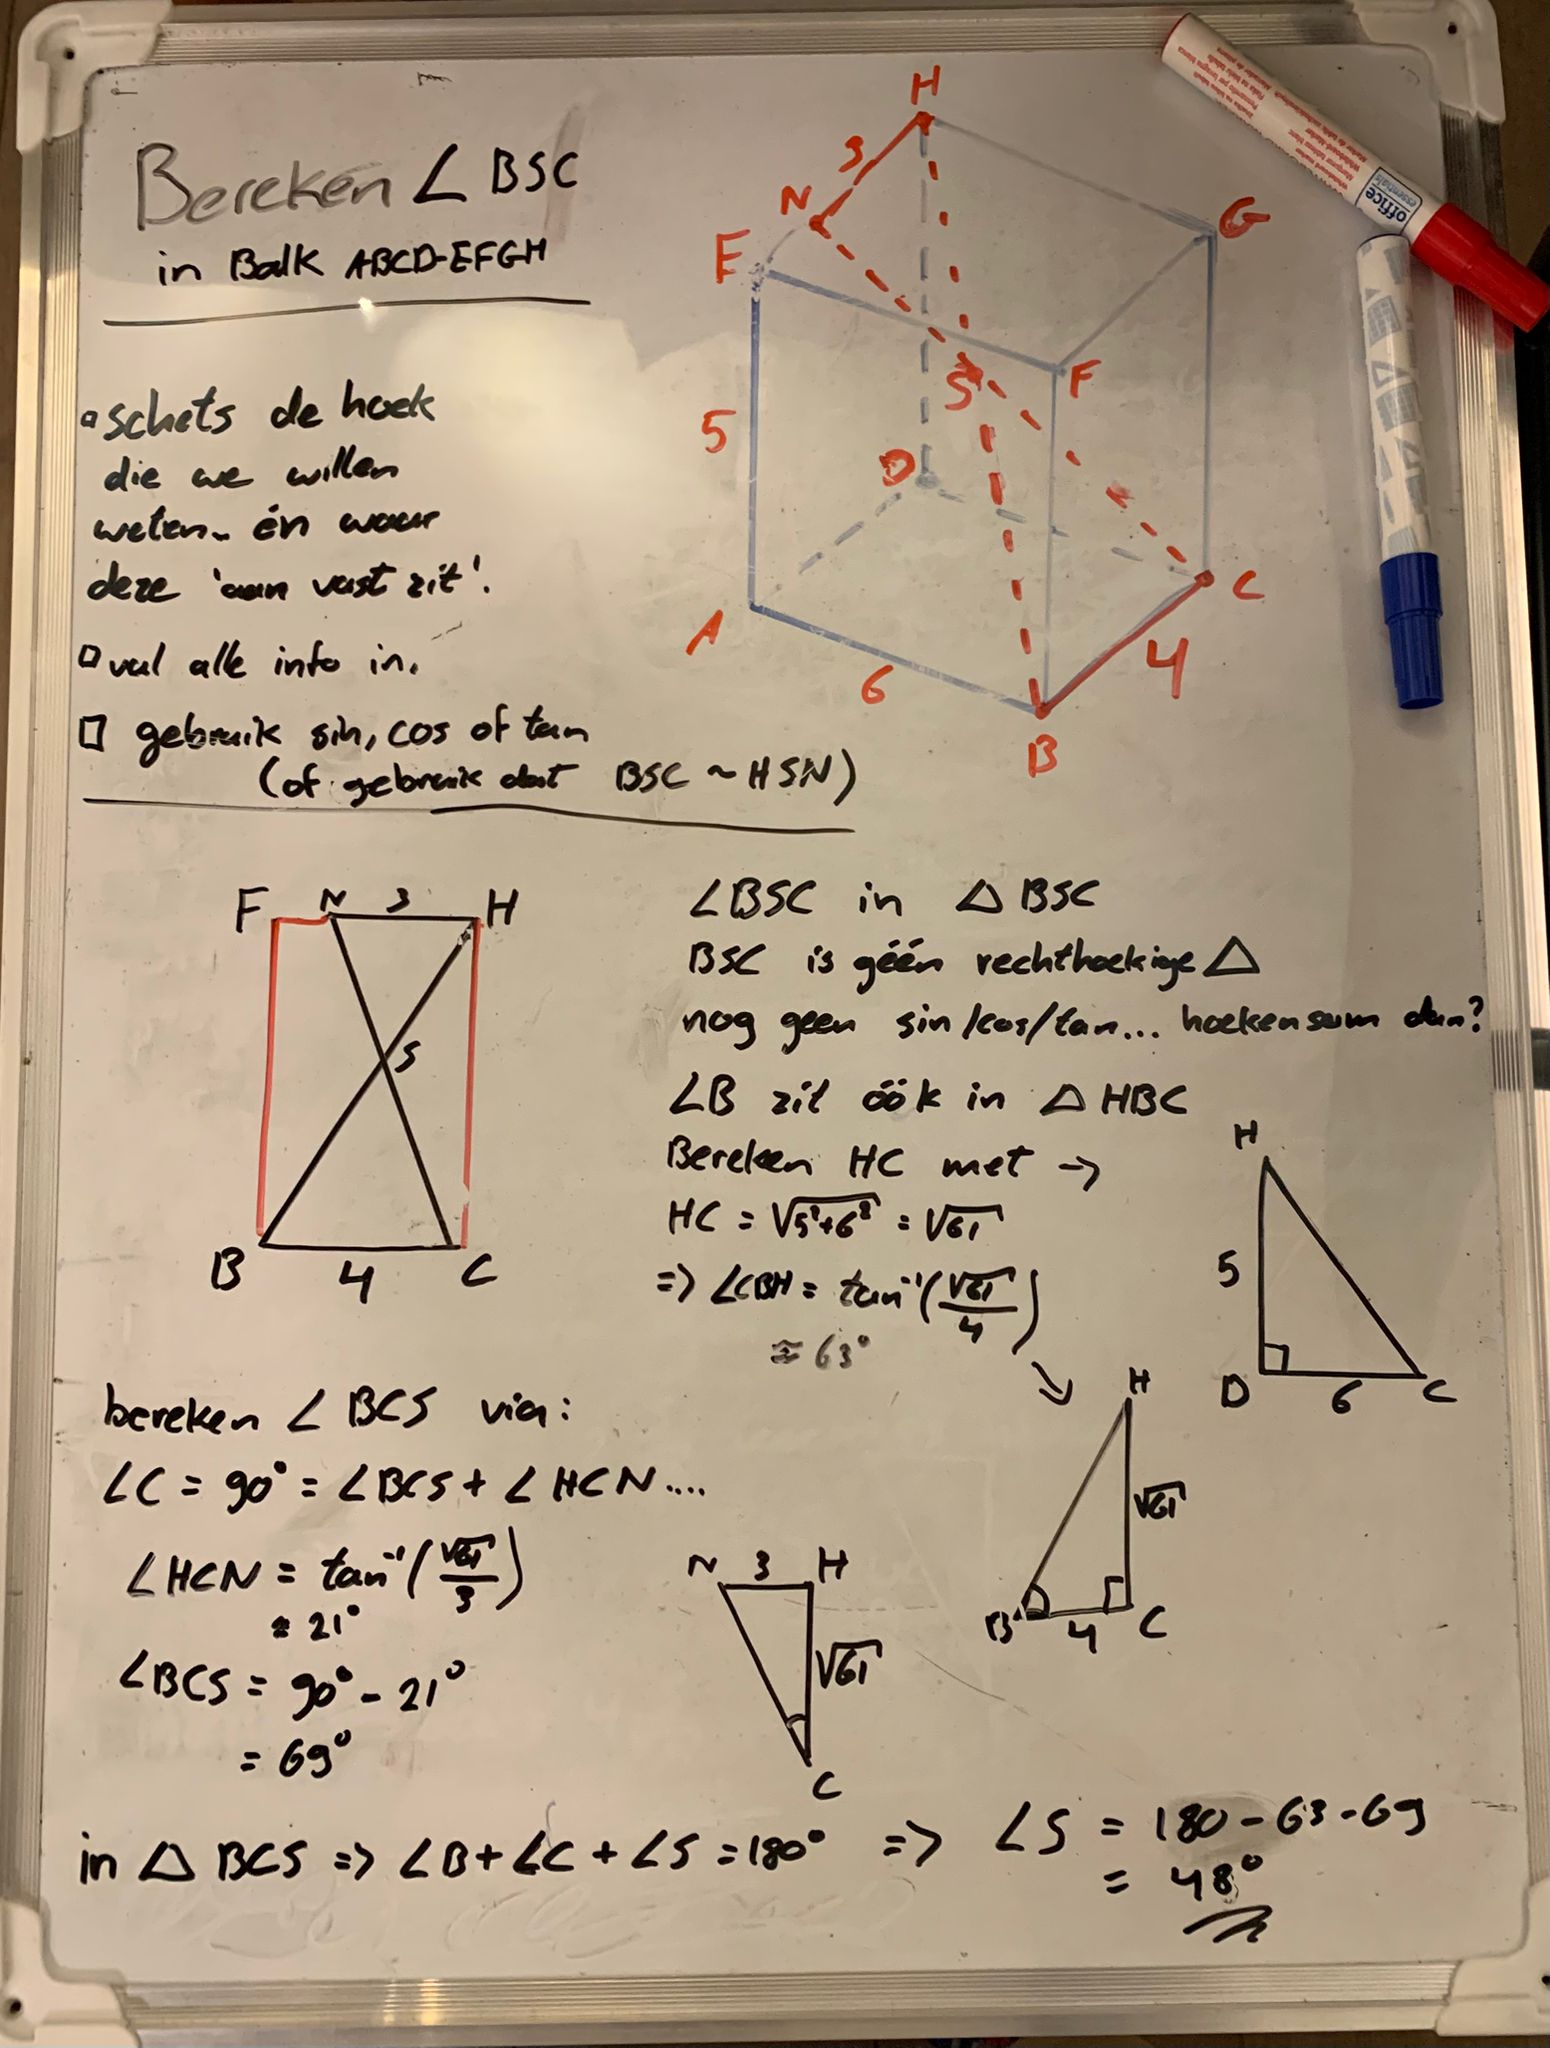 Bereken ∠ BSC
in Balk ABCD-EFGH
▫ schets de hoek
die we willen
weten.. én waar
deze 'aan vast zit'.
▫ vul alle info in.
□ gebruik sin, cos of tan
(of gebruik dat BSC ~ HSN)
H
3
N
E
G
F
S
5
D
C
A
6
4
B
F N 3 H
S
B 4 C
∠BSC in △ BSC
BSC is géén rechthoekige △
nog geen sin/cos/tan... hoekensom dan?
∠B zit óók in △ HBC
Bereken HC met →
HC = √5²+6² = √61
=> ∠CBH = tan⁻¹(√61/4)
≈ 63°
H
5
D 6 C
H
√61
B 4 C
bereken ∠ BCS via:
∠C = 90° = ∠BCS + ∠HCN....
∠HCN = tan⁻¹(√61/3)
≈ 21°
∠BCS = 90° - 21°
= 69°
N 3 H
√61
C
in △ BCS => ∠B+∠C+∠S = 180° => ∠S = 180-63-69
= 48°
office
essentials